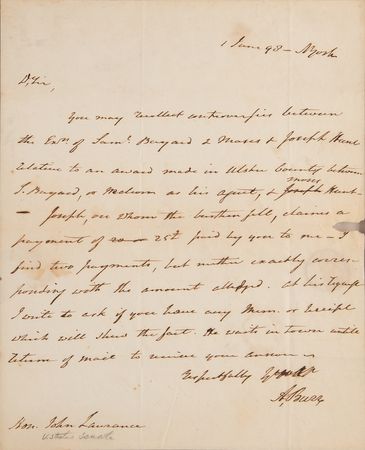 1 June 98 – NYork
D. Sir,
You may recollect controversies between
the Exrs of Saml. Bayard & Moses & Joseph Hunt
relative to an award made in Ulster County between
S. Bayard, or as his agent, & Joseph Moses Hunt
– Joseph, on whom the burthen fell, claims a
payment of 25£ paid by you to me – I
find two payments, but neither exactly corres-
ponding with the amount alledged. At his request
I write to ask if you have any Mem. or receipt
which will shew the fact. He waits in town until
return of mail to receive your answer –
Respectfully
A. Burr
Hon. John Lawrance
U States Senate